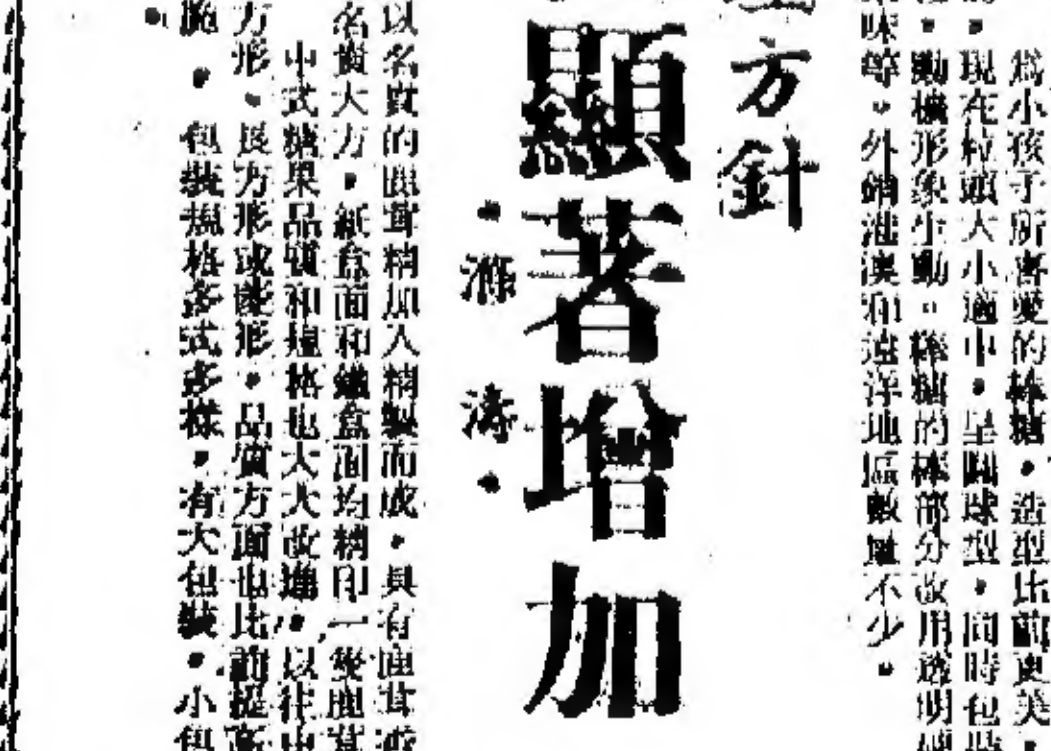 爲小孩子所喜愛的棒糖,造型比前更美,
,現在粒頭大小適中,呈圓球型,同時包裝
,動機形象生動。棒糖的棒部分改用透明
味等。外銷港澳和遠洋地區數量不少。
方針
顯著增加
·濤·
以名貴的鹿茸精加入精製而成,具有鹿茸
名貴大方,紙盒面和鐵盒面均精印一隻鹿茸
中式糖果品質和規格也大大改進,以往中
方形、長方形或菱形,品質方面也比前提高
脆,包裝規格多式多樣,有大包裝,小包